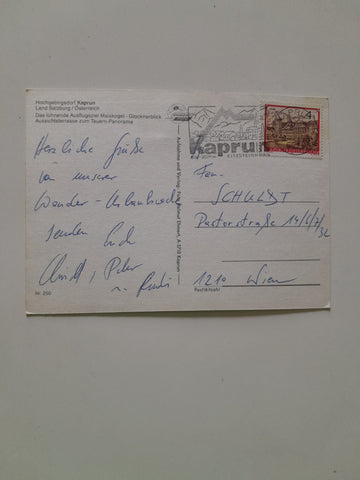 Hochgebirgsdorf Kaprun
Land Salzburg / Österreich
Das lohnende Ausflugsziel Maiskogel - Glocknerblick
Aussichtsterrasse zum Tauern-Panorama
Herzliche Grüße
von unserer
Wander-Urlaubswoche
senden Euch
Peter
u.
Nr. 250
Aufnahme und Verlag: Foto
A-5710 Kaprun
Kaprun
4
Fam.
SCHULDT
Pastorstraße
1210 Wien
Postleitzahl